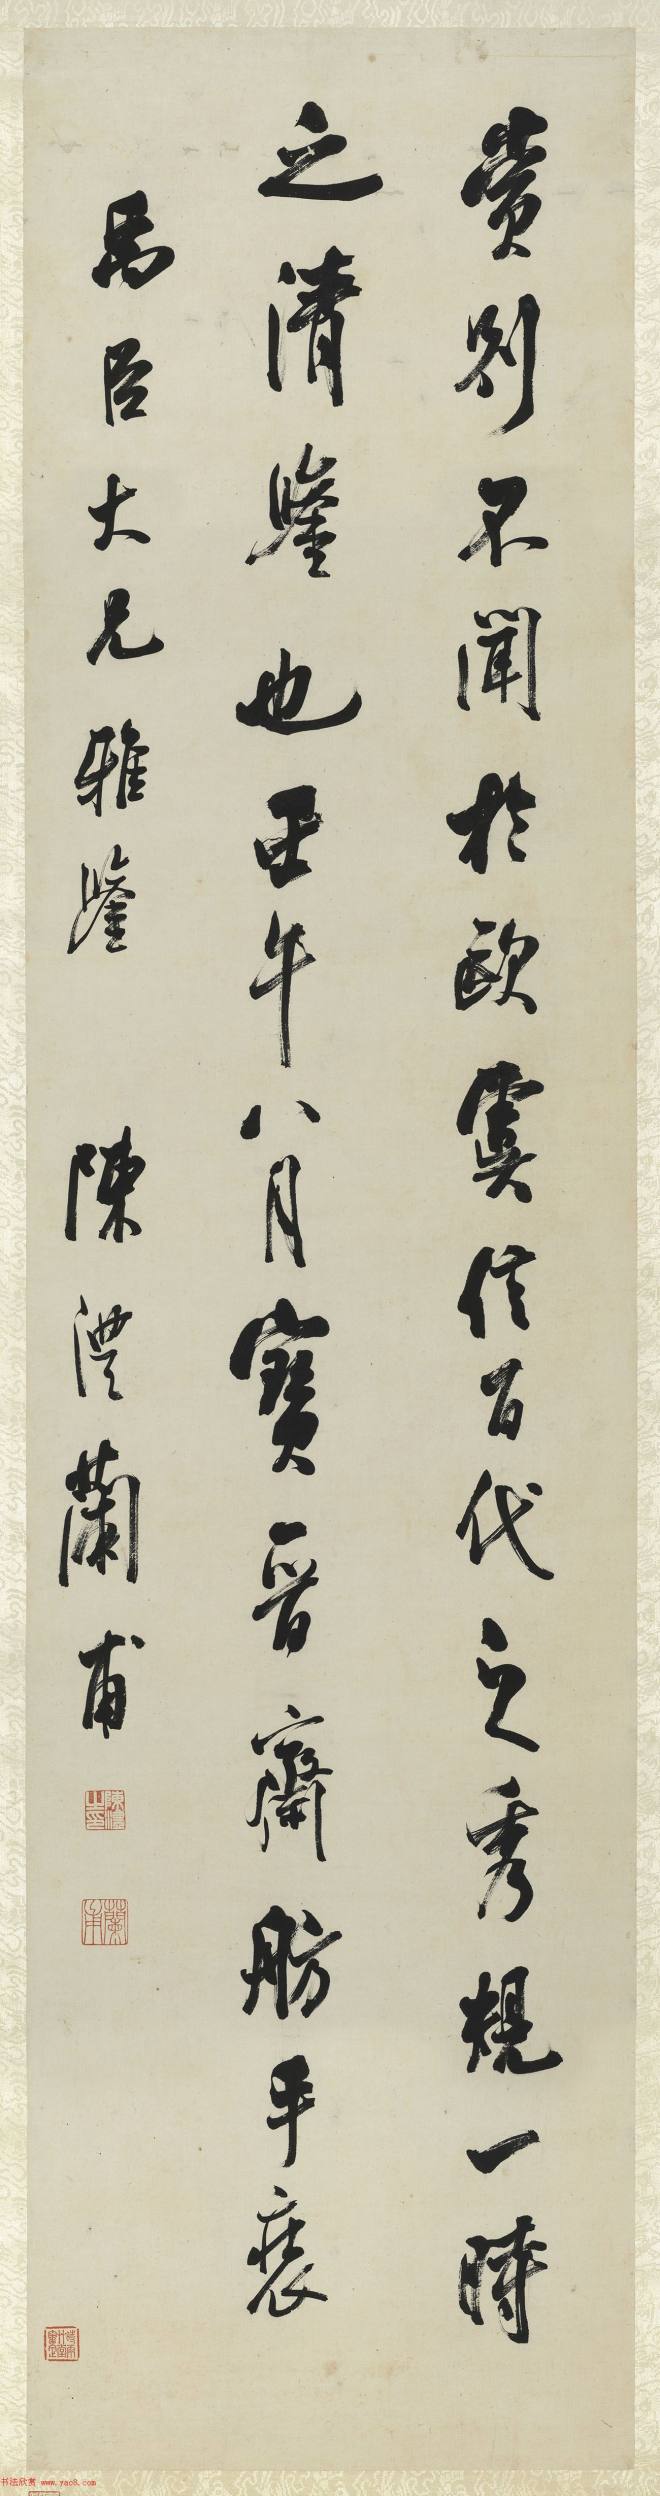 賞別不聞於歐虞信百代之秀規一時
之清鑒也壬午八月寶晉齋舫手裝
禹臣大兄雅鑒 陳澧蘭甫
陳澧之印
蘭甫
书法欣赏 www.yac8.com